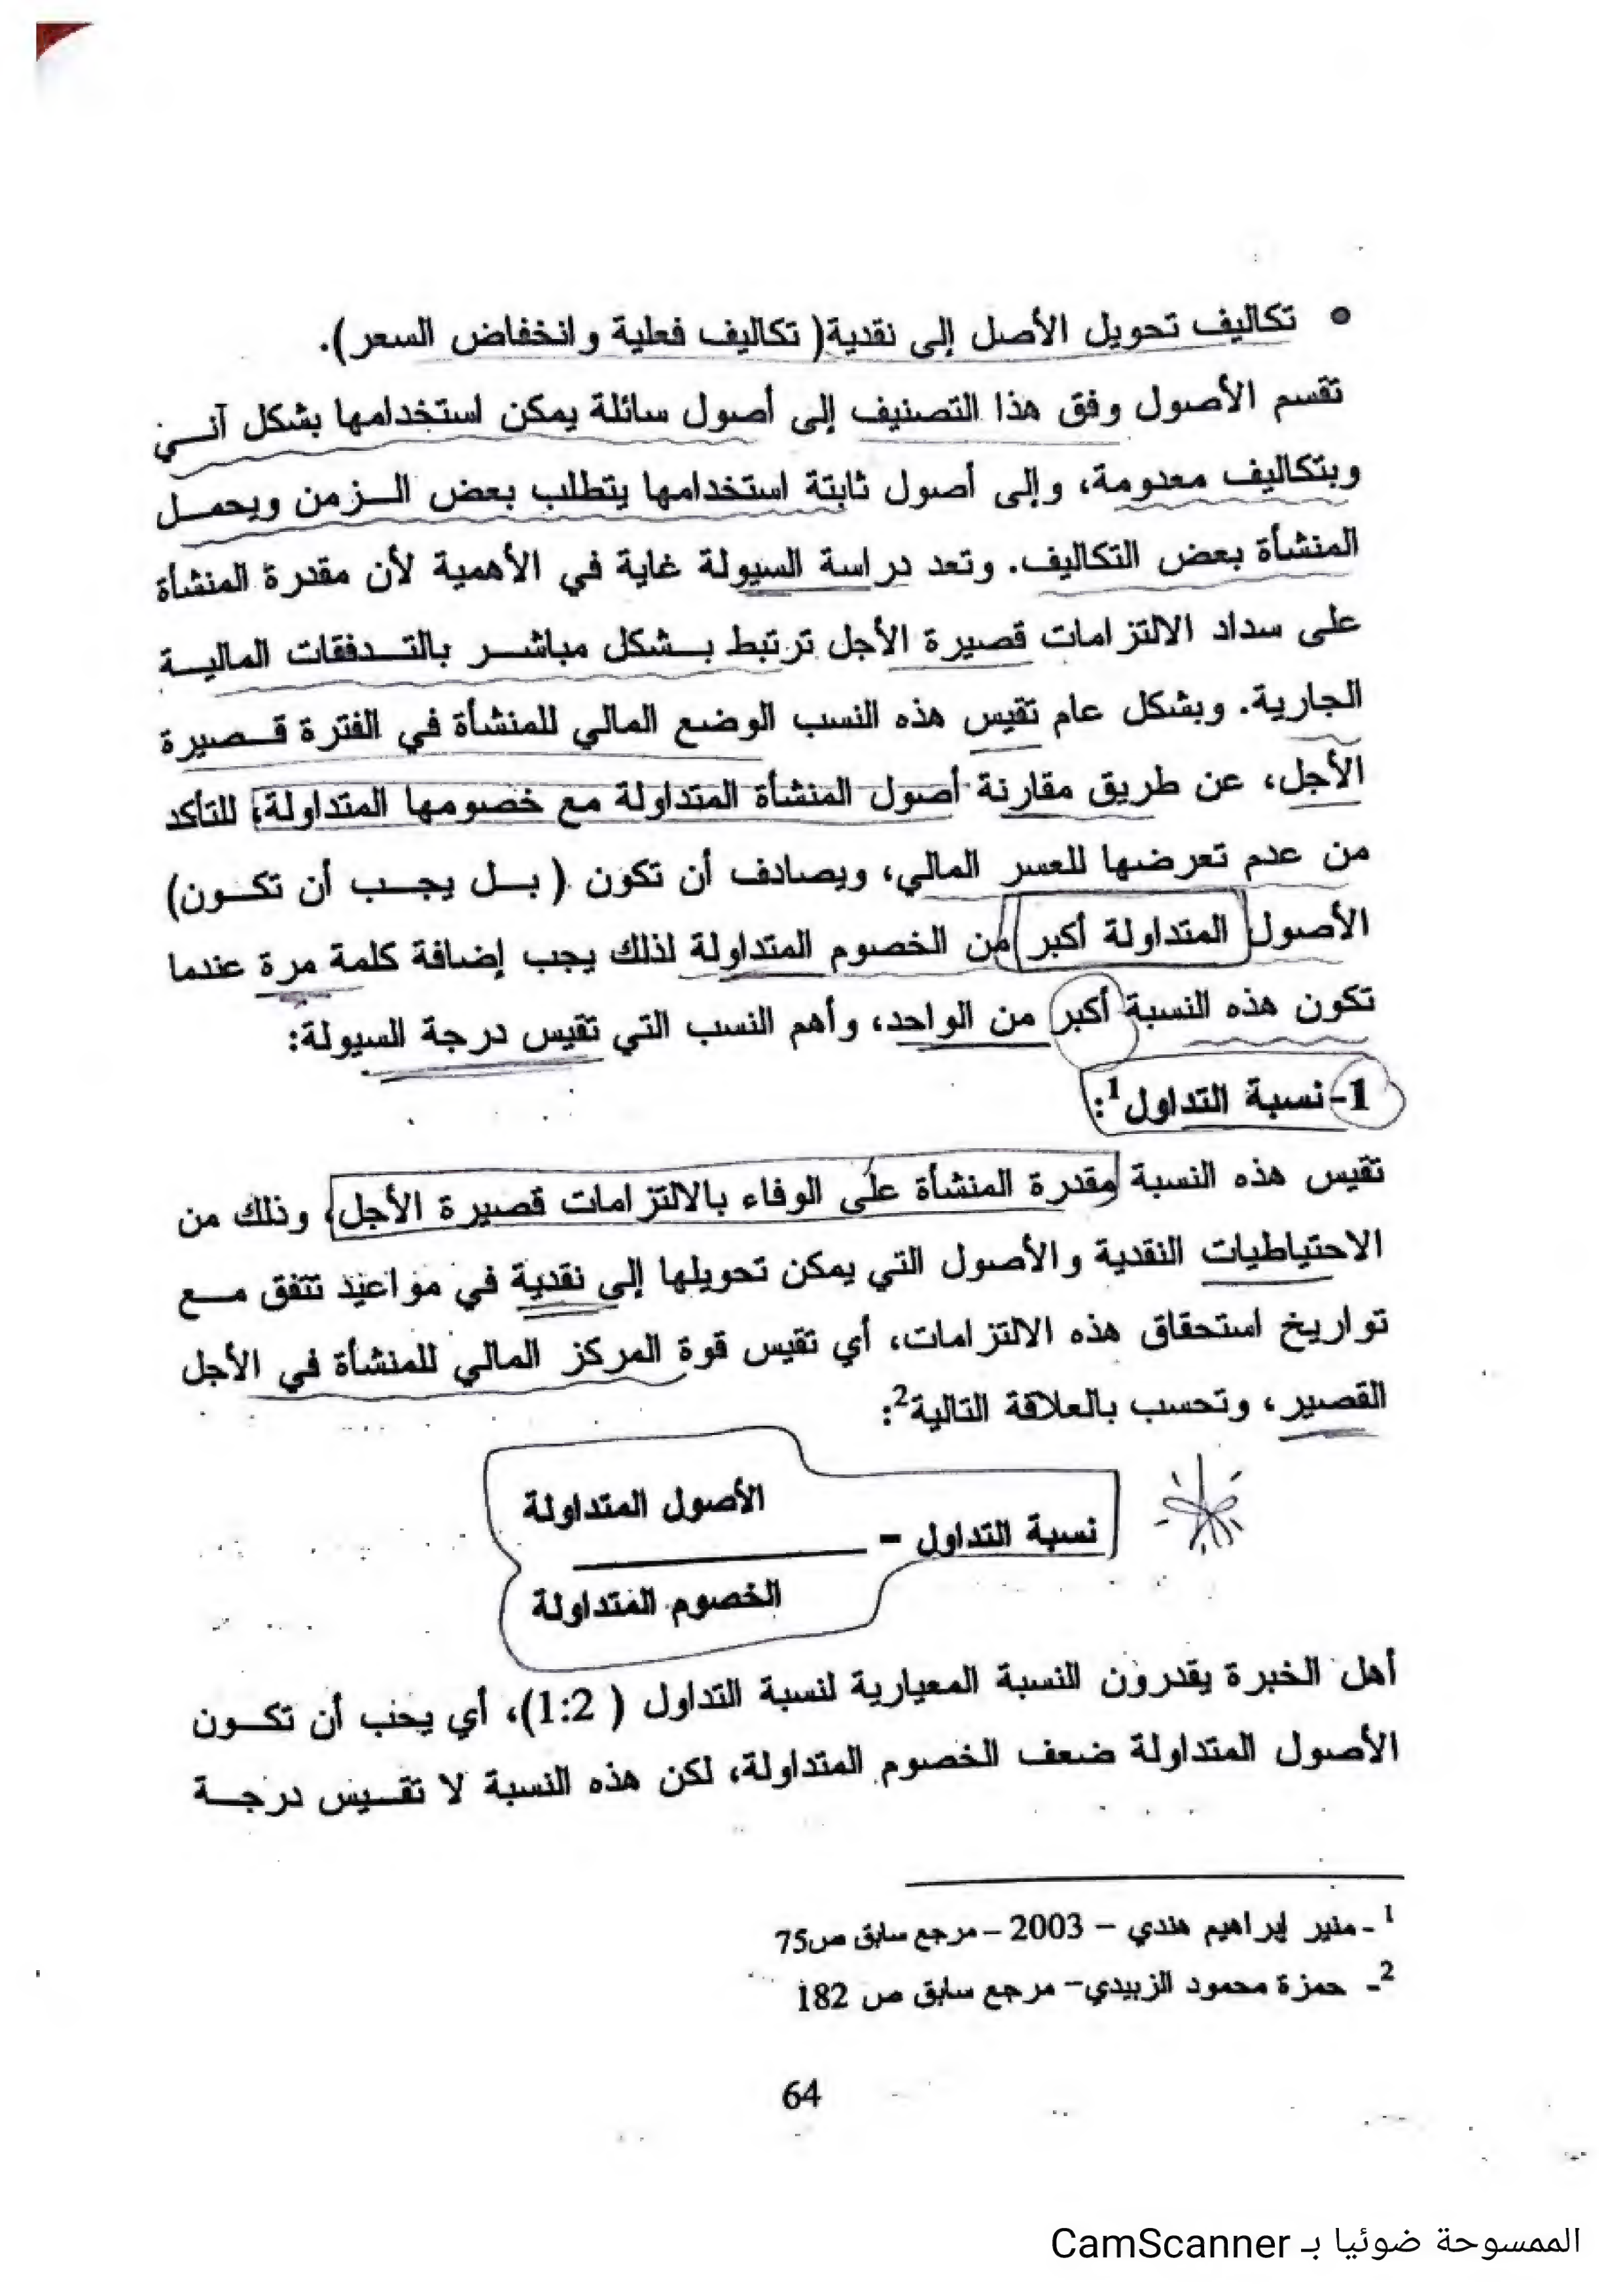 • تكاليف تحويل الأصل إلى نقدية( تكاليف فعلية وانخفاض السعر).
تقسم الأصول وفق هذا التصنيف إلى أصول سائلة يمكن استخدامها بشكل آنـي
وبتكاليف معدومة، وإلى أصول ثابتة استخدامها يتطلب بعض الـزمن ويحمـل
المنشأة بعض التكاليف. وتعد دراسة السيولة غاية في الأهمية لأن مقدرة المنشأة
على سداد الالتزامات قصيرة الأجل ترتبط بـشكل مباشـر بالتـدفقات الماليـة
الجارية. وبشكل عام تقيس هذه النسب الوضع المالي للمنشأة في الفترة قـصيرة
الأجل، عن طريق مقارنة أصول المنشأة المتداولة مع خصومها المتداولة، للتأكد
من عدم تعرضها للعسر المالي، ويصادف أن تكون ( بـل يجـب أن تكـون)
الأصول المتداولة أكبر من الخصوم المتداولة لذلك يجب إضافة كلمة مرة عندما
تكون هذه النسبة أكبر من الواحد، وأهم النسب التي تقيس درجة السيولة:
1-نسبة التداول1:
تقيس هذه النسبة مقدرة المنشأة على الوفاء بالالتزامات قصيرة الأجل، وذلك من
الاحتياطيات النقدية والأصول التي يمكن تحويلها إلى نقدية في مواعيد تتفق مـع
تواريخ استحقاق هذه الالتزامات، أي تقيس قوة المركز المالي للمنشأة في الأجل
القصير، وتحسب بالعلاقة التالية2:
الأصول المتداولة
نسبة التداول =
الخصوم المتداولة
أهل الخبرة يقدرون النسبة المعيارية لنسبة التداول ( 1:2)، أي يجب أن تكـون
الأصول المتداولة ضعف الخصوم المتداولة، لكن هذه النسبة لا تقـيس درجـة
1 - منير إبراهيم هندي – 2003 – مرجع سابق ص75
2- حمزة محمود الزبيدي– مرجع سابق ص 182
64
الممسوحة ضوئيا بـ CamScanner